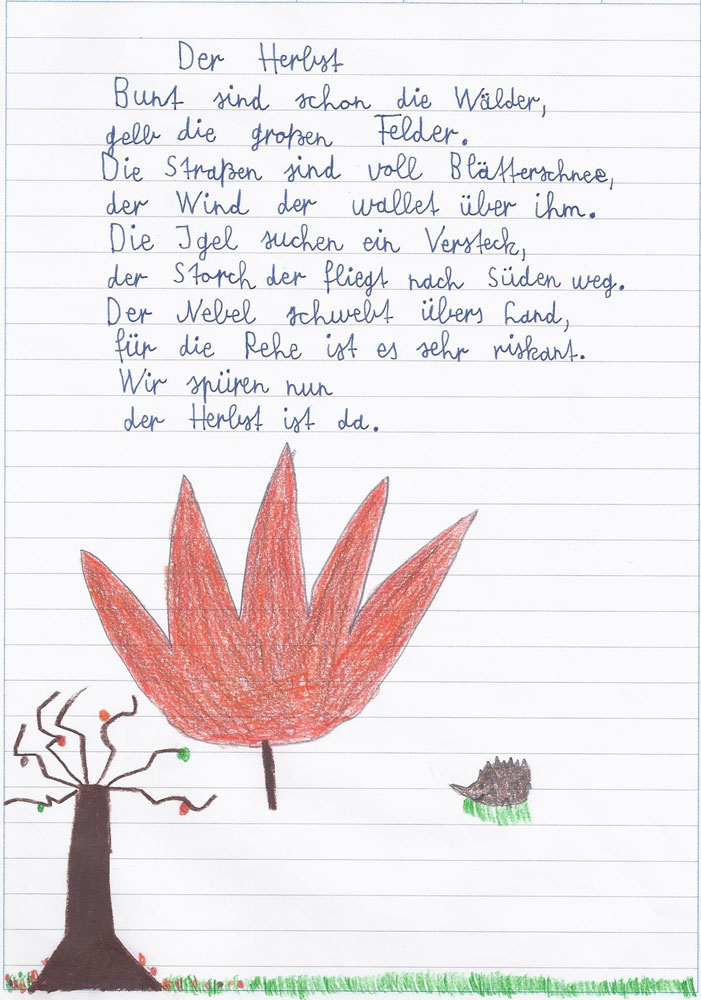 Der Herbst
Bunt sind schon die Wälder,
gelb die großen Felder.
Die Straßen sind voll Blätterschnee,
der Wind der wallet über ihm.
Die Igel suchen ein Versteck,
der Storch der fliegt nach Süden weg.
Der Nebel schwebt übers Land,
für die Rehe ist es sehr riskant.
Wir spüren nun
der Herbst ist da.